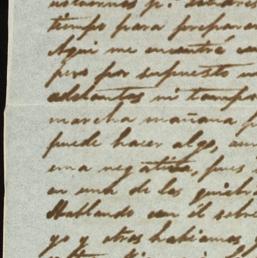 tiempo para preparar
Aqui me encontré con
pero por supuesto
adelantos ni tiempo
marcha mañana p
puede hacer algo, aun
una negativa, pues
en una de las quiebr
Hablando con él sobre
yo y otros habiamos